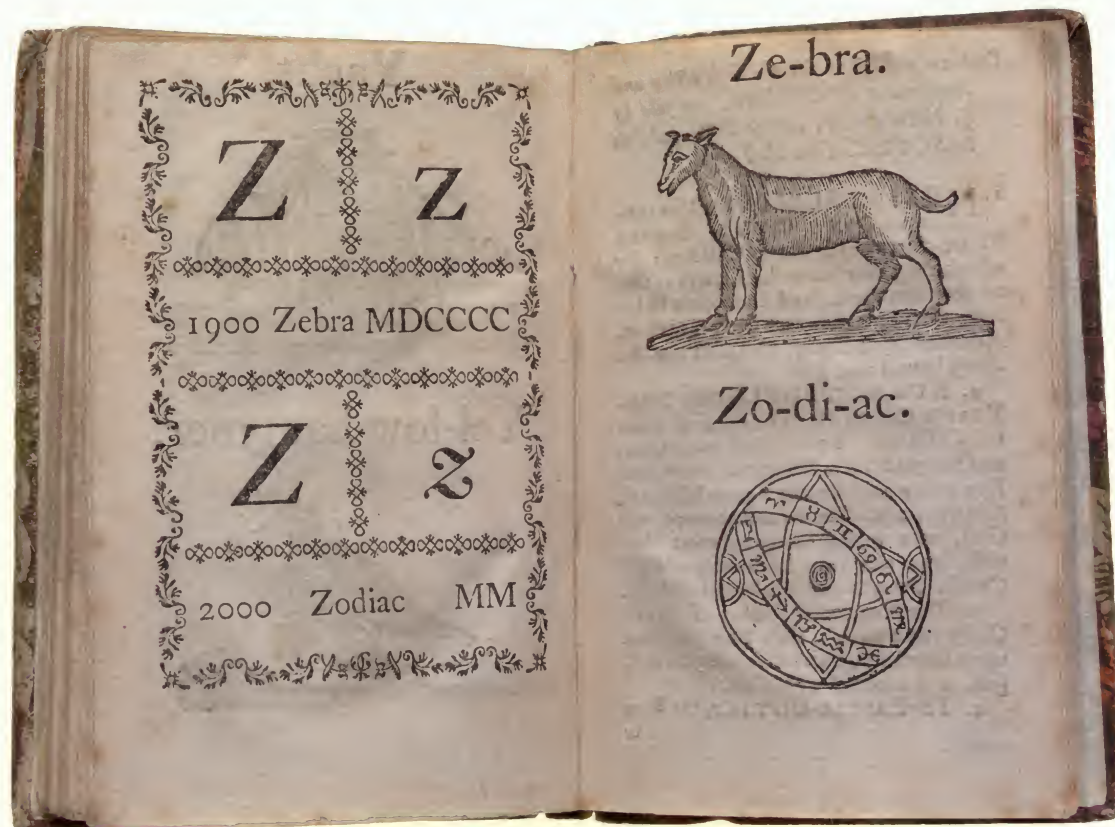 Z z
1900 Zebra MDCCCC
Z z
2000 Zodiac MM
Ze-bra.
Zo-di-ac.